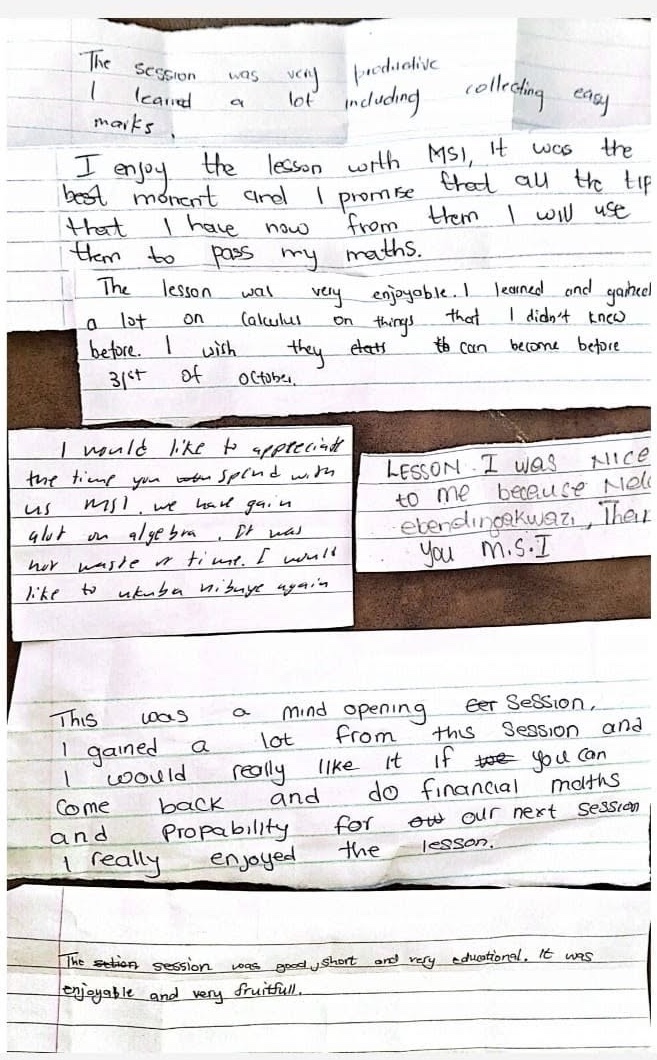 The session was very productive
I learned a lot including collecting easy
marks.
I enjoy the lesson with MSI, It was the
best moment and I promise that all the tip
that I have now from them I will use
them to pass my maths.
The lesson was very enjoyable. I learned and gained
a lot on Calculus on things that I didn't knew
before. I wish they can become before
31st of October.
I would like to appreciate
the time you spend with
us MSI. we have gain
alot on algebra. It was
not waste of time. I would
like to ukuba nibuye again
LESSON. I was NICE
to me because
ebendingakwazi,
you M.S.I
This was a mind opening Session.
I gained a lot from this Session and
I would really like it if you can
Come back and do financial maths
and Propability for our next session
I really enjoyed the lesson.
The session was good, short and very educational. It was
enjoyable and very fruitfull.